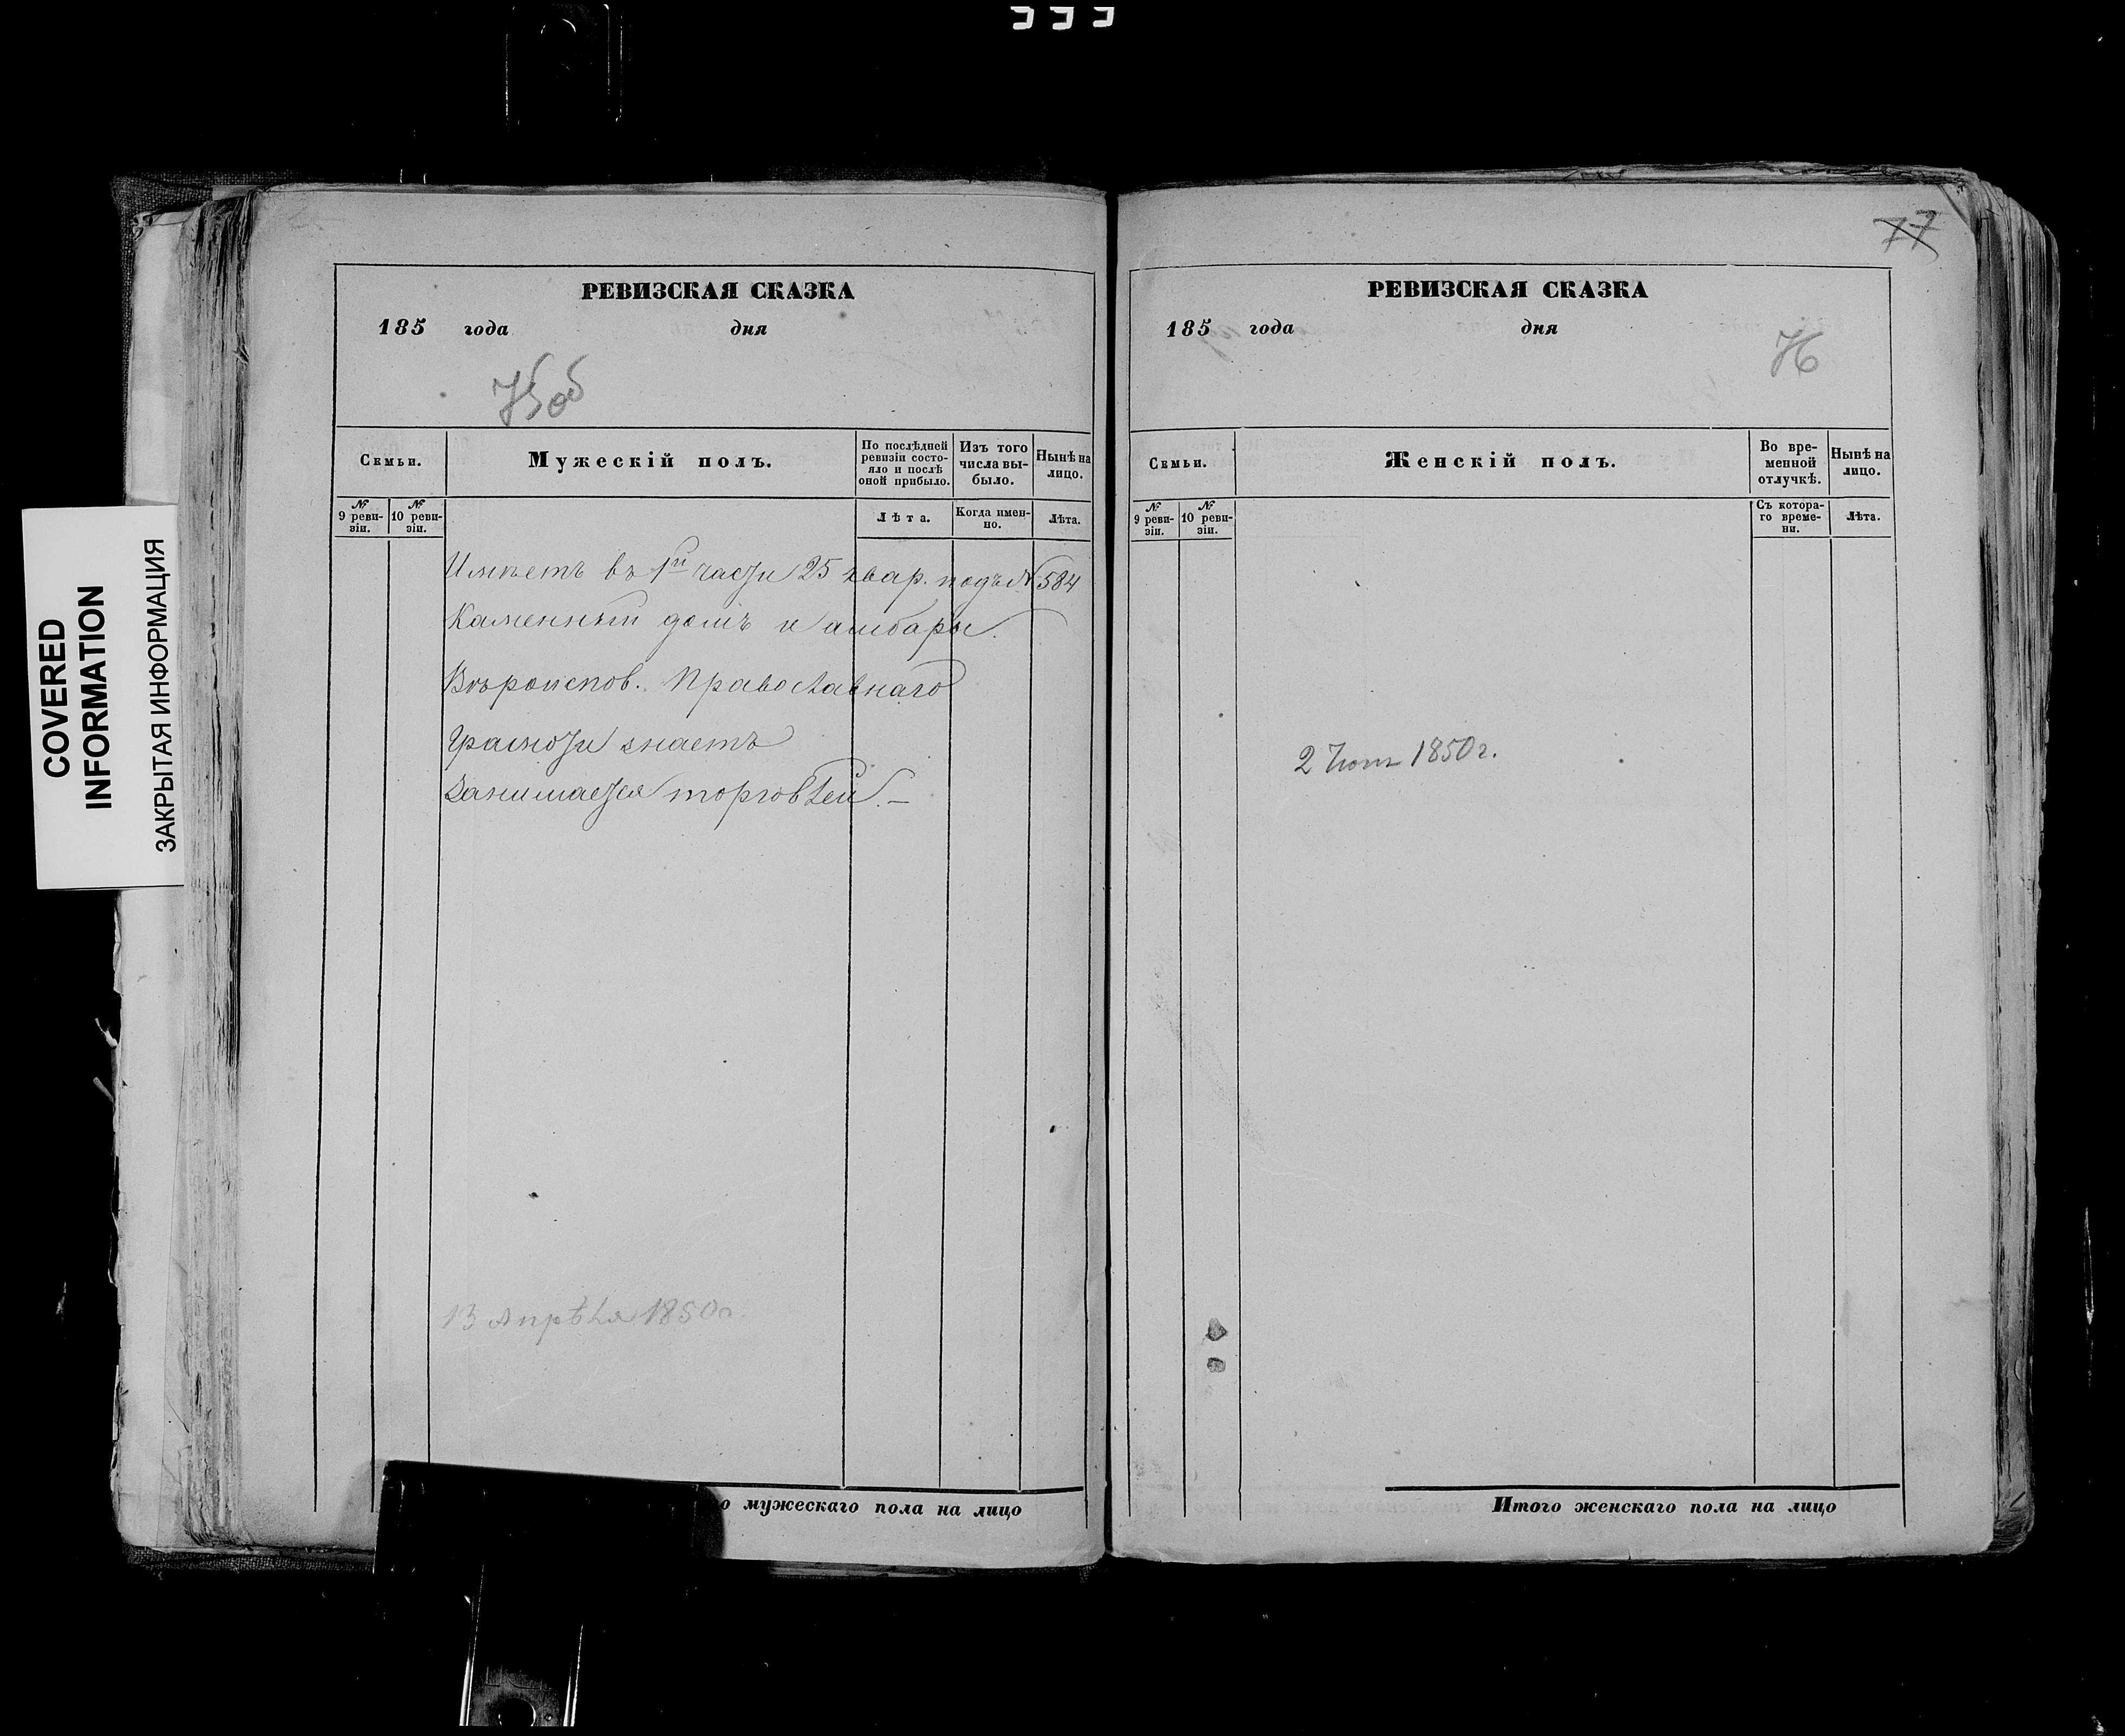 COVERED
INFORMATION
ЗАКРЫТАЯ ИНФОРМАЦИЯ
РЕВИЗСКАЯ СКАЗКА
185 года дня
75об
Семьи.
Мужескій полъ.
По послѣдней ревизіи состояло и послѣ оной прибыло.
Изъ того числа выбыло.
Нынѣ на лицо.
№ 9 ревизіи.
№ 10 ревизіи.
Лѣта.
Когда именно.
Лѣта.
Имѣетъ въ 1й части 25 квар. подъ № 584
Каменный домъ и амбары.
Вѣроиспов. Православнаго
Грамоти знаетъ
Занимается торговлей. —
13 Апрѣля 1850г.
о мужескаго пола на лицо
77
РЕВИЗСКАЯ СКАЗКА
185 года дня
76
Семьи.
Женскій полъ.
Во временной отлучкѣ.
Нынѣ на лицо.
№ 9 ревизіи.
№ 10 ревизіи.
Съ котораго времени.
Лѣта.
2 1850г.
Итого женскаго пола на лицо